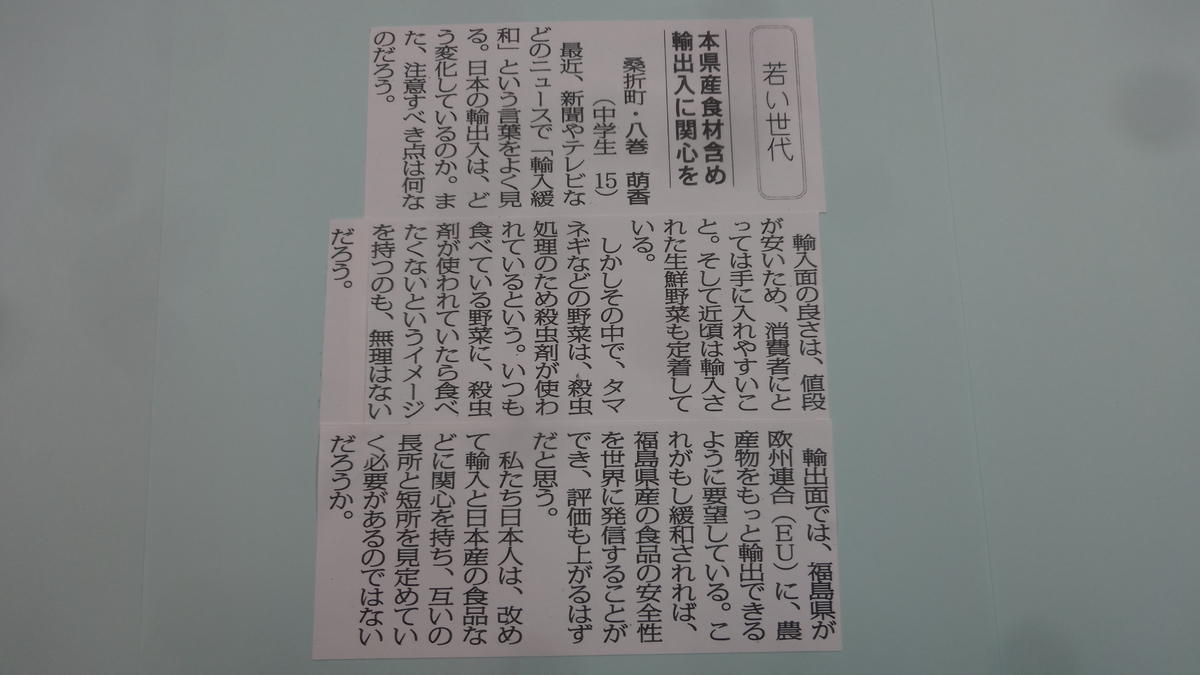 若い世代
本県産食材含め
輸出入に関心を
桑折町・八巻 萌香
(中学生 15)
最近、新聞やテレビな
どのニュースで「輸入緩
和」という言葉をよく見
る。日本の輸出入は、ど
う変化しているのか。ま
た、注意すべき点は何な
のだろう。
輸入面の良さは、値段
が安いため、消費者にと
っては手に入れやすいこ
と。そして近頃は輸入さ
れた生鮮野菜も定着して
いる。
しかしその中で、タマ
ネギなどの野菜は、殺虫
処理のため殺虫剤が使わ
れているという。いつも
食べている野菜に、殺虫
剤が使われていたら食べ
たくないというイメージ
を持つのも、無理はない
だろう。
輸出面では、福島県が
欧州連合(EU)に、農
産物をもっと輸出できる
ように要望している。こ
れがもし緩和されれば、
福島県産の食品の安全性
を世界に発信することが
でき、評価も上がるはず
だと思う。
私たち日本人は、改め
て輸入と日本産の食品な
どに関心を持ち、互いの
長所と短所を見定めてい
く必要があるのではない
だろうか。